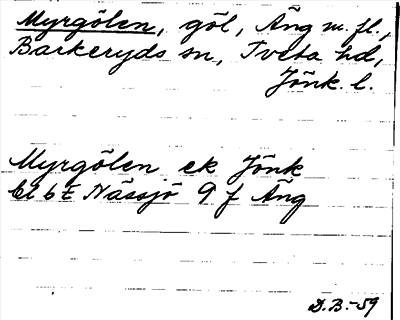 Myrgölen, göl, Äng m. fl.,
Barkeryds sn, Tveta hd,
Jönk. l.
Myrgölen ek Jönk
bl 6E Nässjö 9 f Äng
D.B.-59